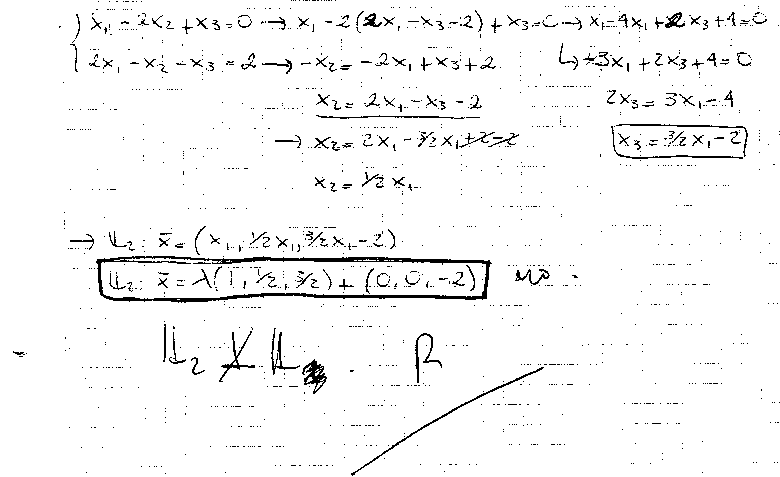 { x₁ - 2x₂ + x₃ = 0 → x₁ - 2(2x₁ - x₃ - 2) + x₃ = 0 → x₁ - 4x₁ + 2x₃ + 4 = 0
{ 2x₁ - x₂ - x₃ = 2 → -x₂ = -2x₁ + x₃ + 2 ↳ -3x₁ + 2x₃ + 4 = 0
x₂ = 2x₁ - x₃ - 2 2x₃ = 3x₁ - 4
→ x₂ = 2x₁ - 3/2x₁ + 2 - 2 x₃ = 3/2x₁ - 2
x₂ = 1/2x₁
→ L₂: x̄ = (x₁, 1/2x₁, 3/2x₁ - 2)
L₂: x̄ = λ(1, 1/2, 3/2) + (0, 0, -2) no.